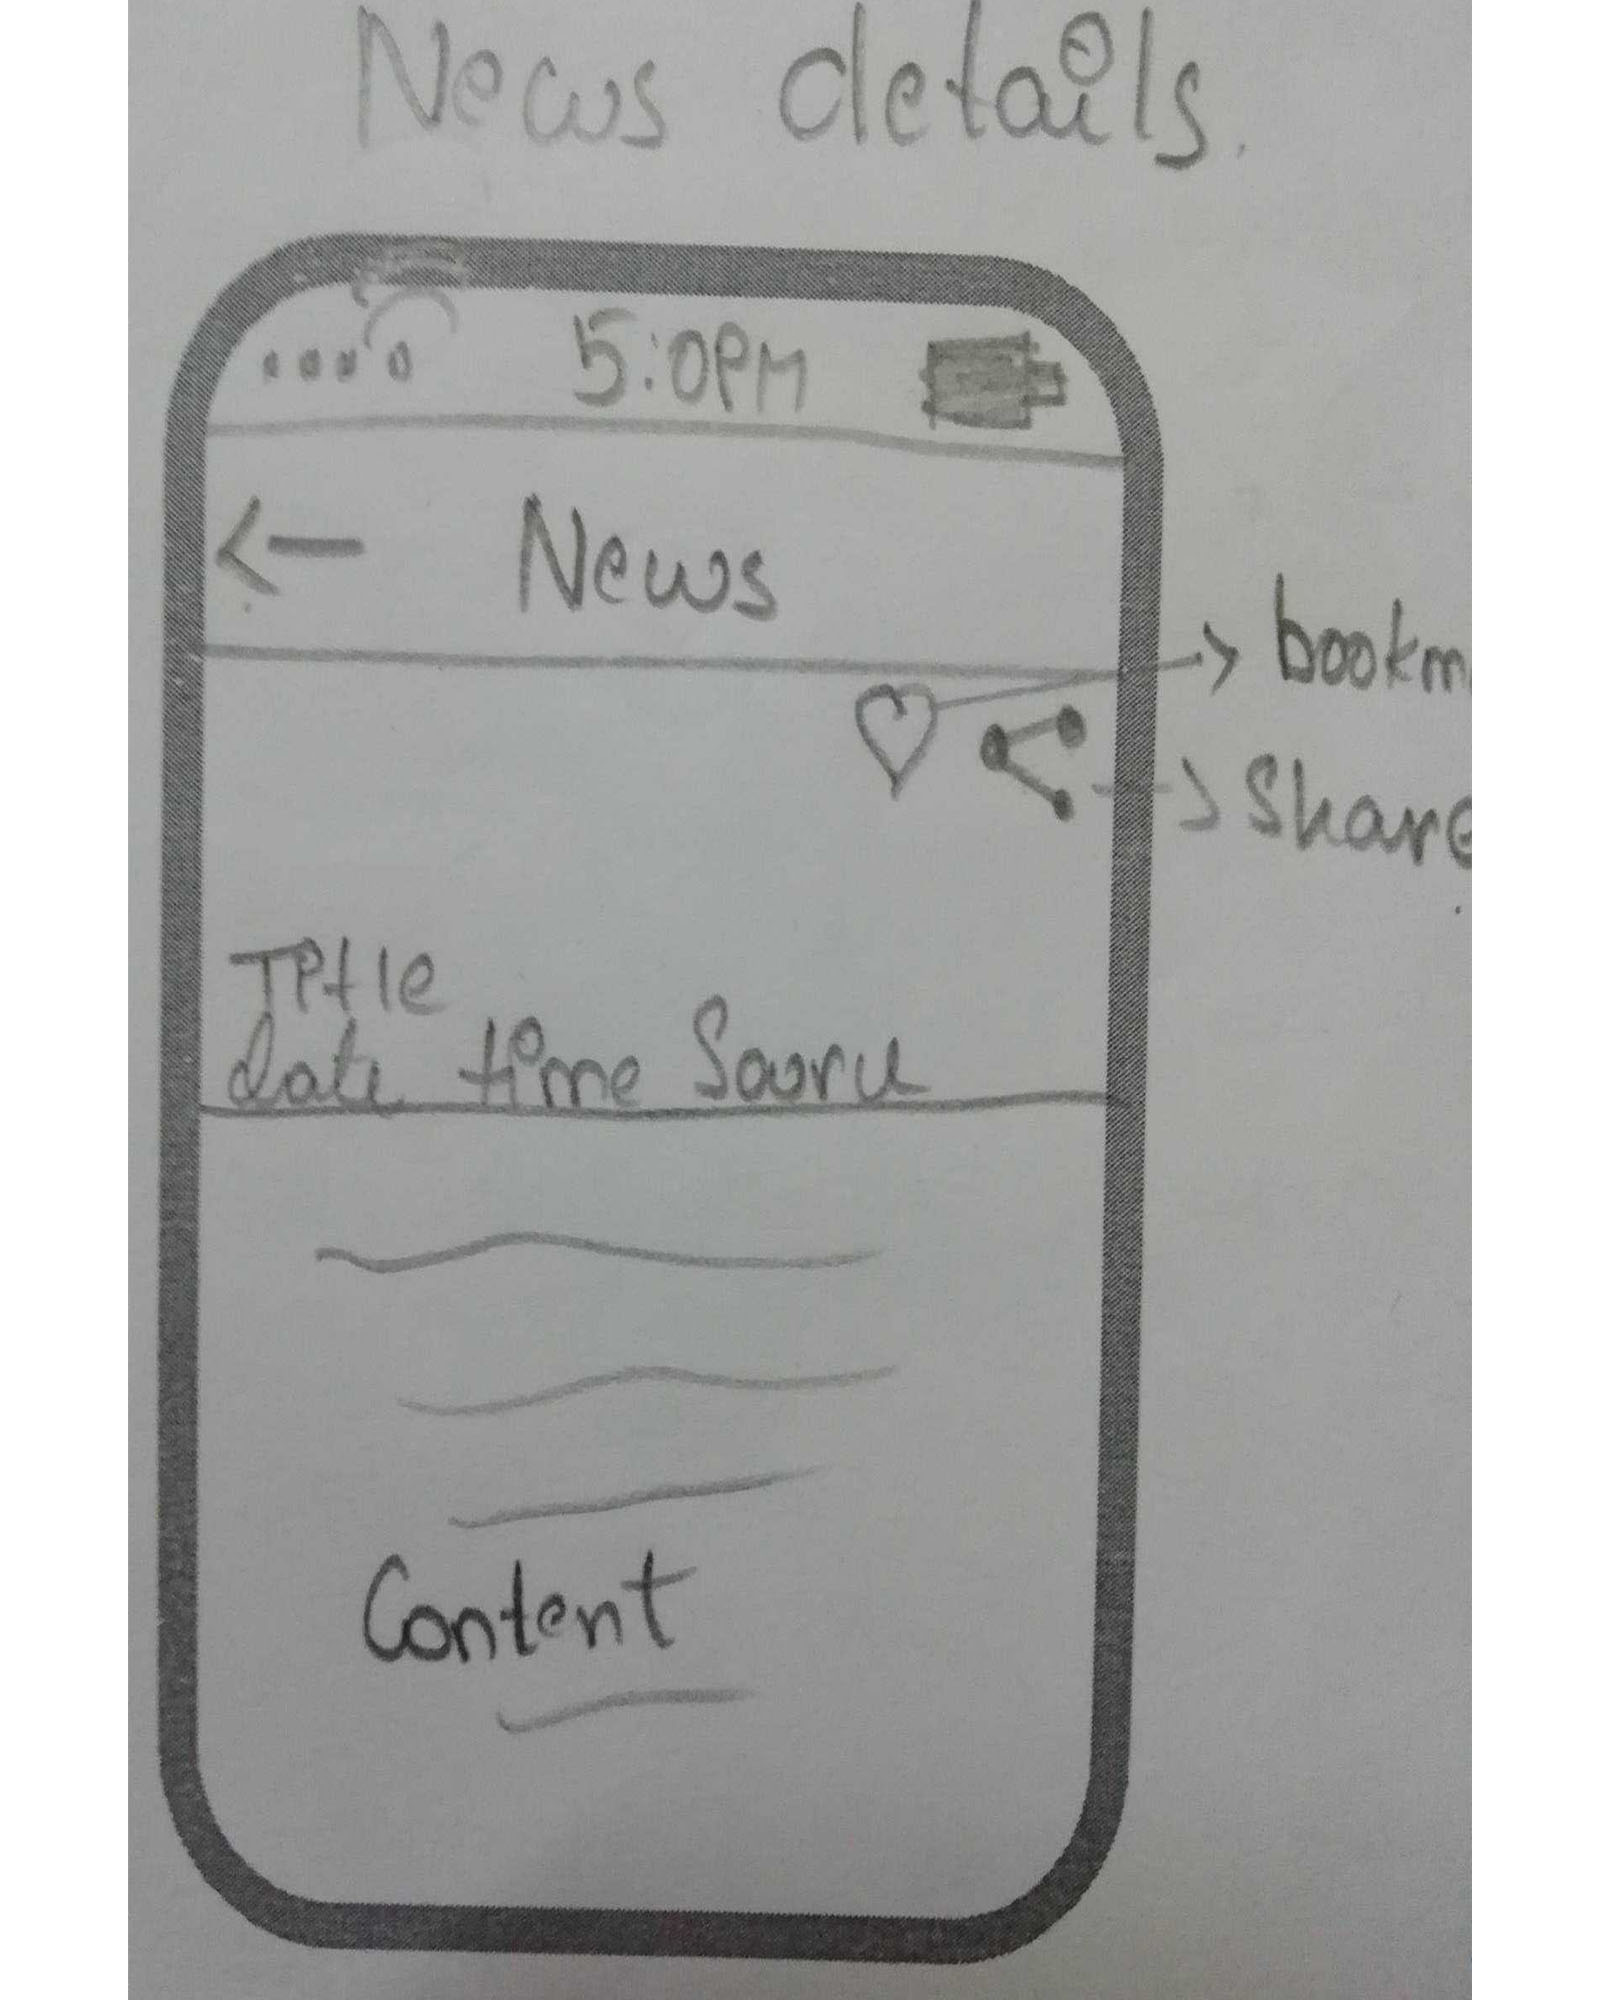 News details.
5:0PM
News
bookm
Share
Title
date time Source
Content